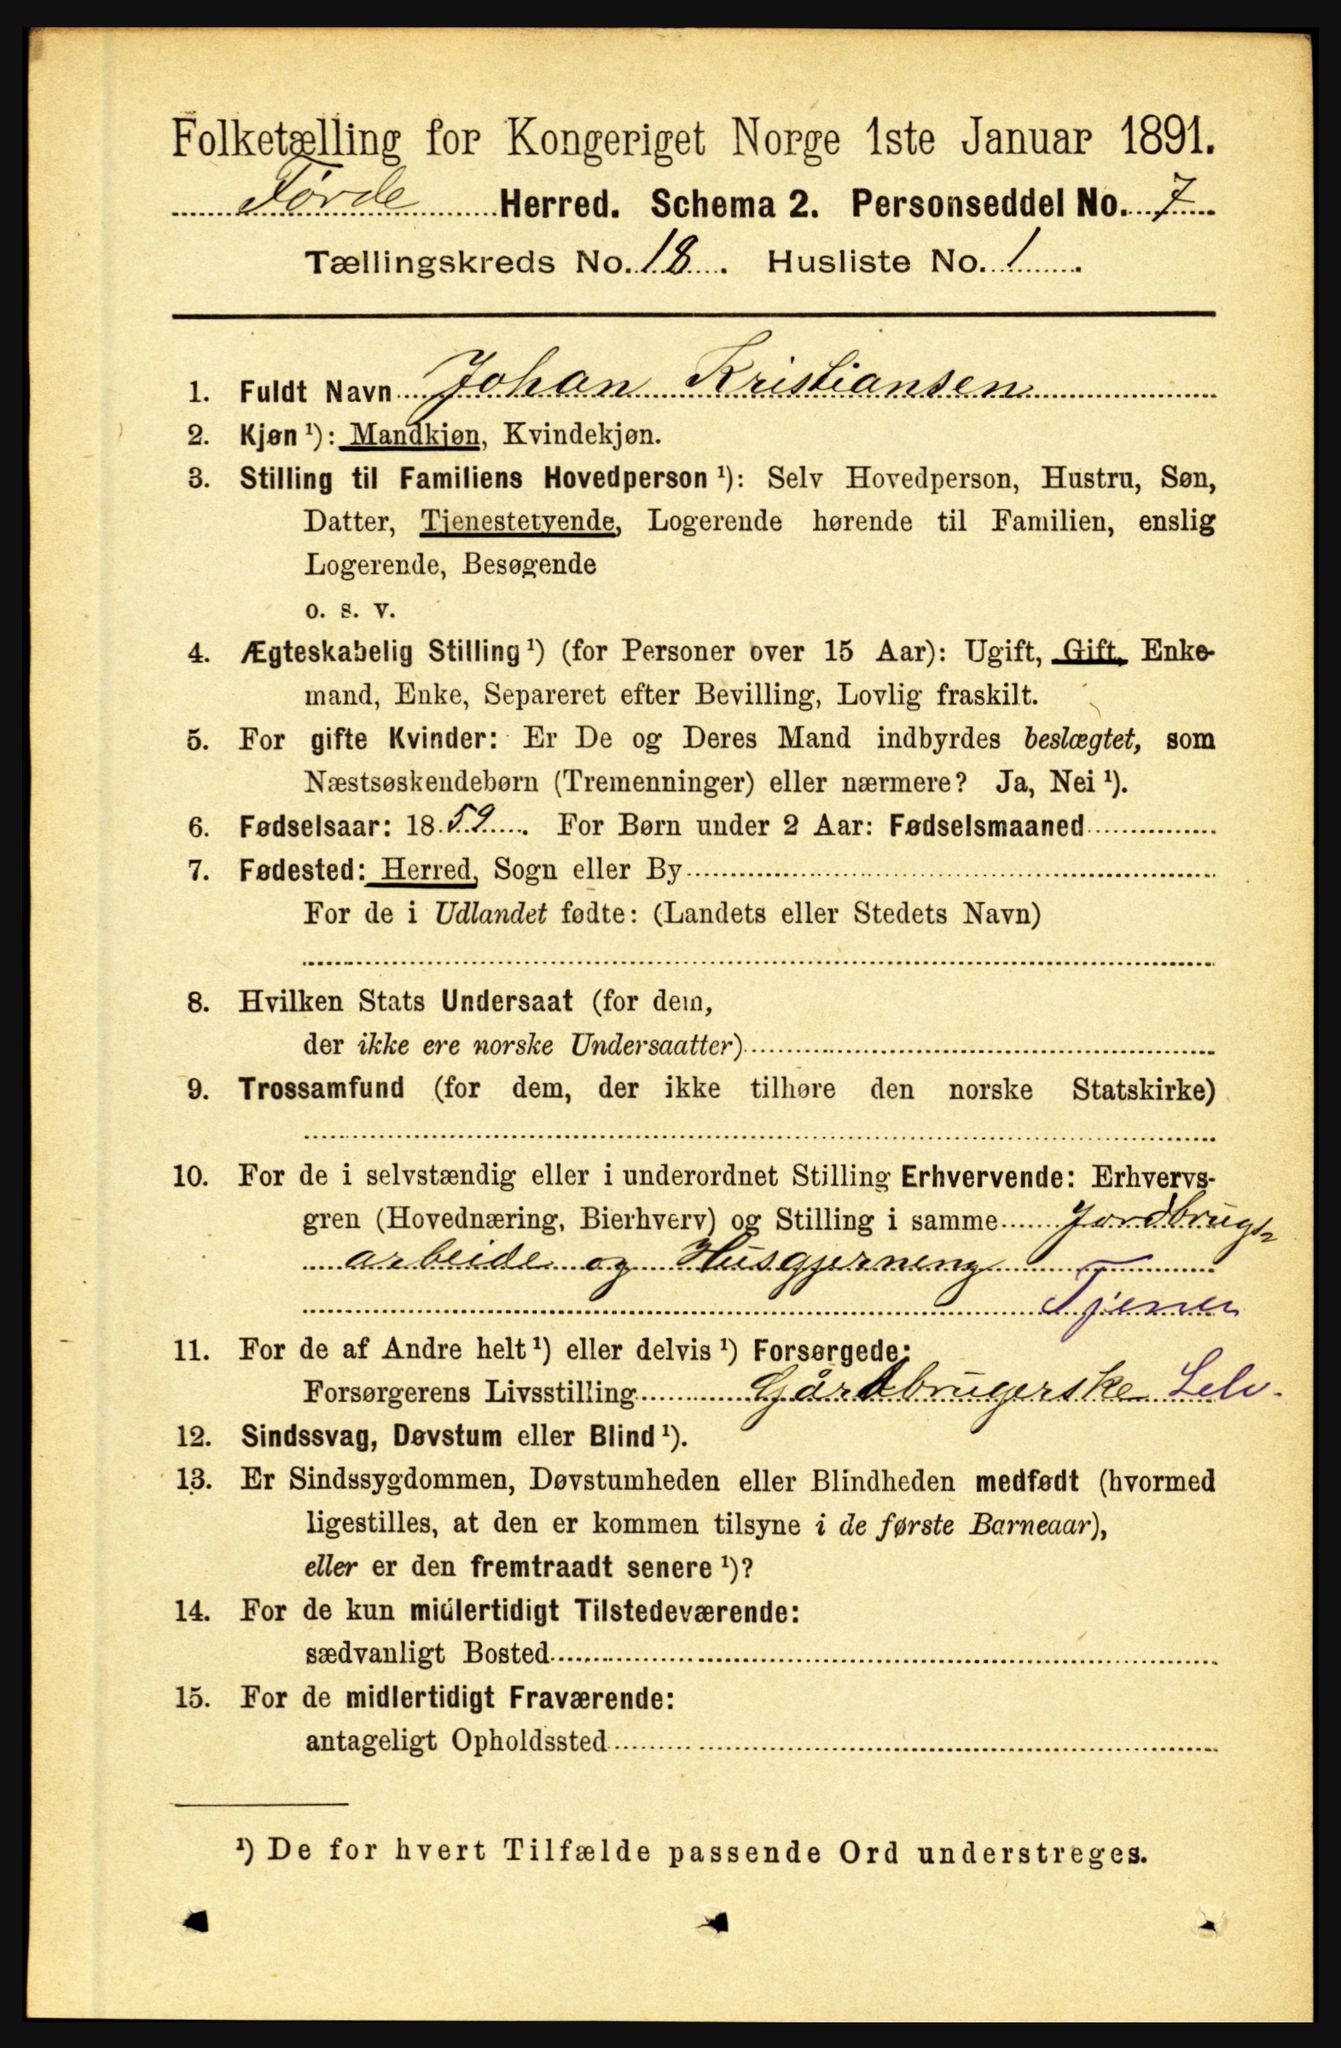 Folketælling for Kongeriget Norge 1ste Januar 1891.
Førde Herred. Schema 2. Personseddel No. 7
Tællingskreds No. 18. Husliste No. 1
1. Fuldt Navn Johan Kristiansen
2. Kjøn ¹): Mandkjøn, Kvindekjøn.
3. Stilling til Familiens Hovedperson ¹): Selv Hovedperson, Hustru, Søn,
Datter, Tjenestetyende, Logerende hørende til Familien, enslig
Logerende, Besøgende
o. s. v.
4. Ægteskabelig Stilling ¹) (for Personer over 15 Aar): Ugift, Gift, Enke-
mand, Enke, Separeret efter Bevilling, Lovlig fraskilt.
5. For gifte Kvinder: Er De og Deres Mand indbyrdes beslægtet, som
Næstsøskendebørn (Tremenninger) eller nærmere? Ja, Nei ¹).
6. Fødselsaar: 1859. For Børn under 2 Aar: Fødselsmaaned
7. Fødested: Herred, Sogn eller By
For de i Udlandet fødte: (Landets eller Stedets Navn)
8. Hvilken Stats Undersaat (for dem,
der ikke ere norske Undersaatter)
9. Trossamfund (for dem, der ikke tilhøre den norske Statskirke)
10. For de i selvstændig eller i underordnet Stilling Erhvervende: Erhvervs-
gren (Hovednæring, Bierhverv) og Stilling i samme Jordbrugs-
arbeide og Husgjerning
Tjener
11. For de af Andre helt ¹) eller delvis ¹) Forsørgede:
Forsørgerens Livsstilling Gårdbrugerske Selv.
12. Sindssvag, Døvstum eller Blind ¹).
13. Er Sindssygdommen, Døvstumheden eller Blindheden medfødt (hvormed
ligestilles, at den er kommen tilsyne i de første Barneaar),
eller er den fremtraadt senere ¹)?
14. For de kun midlertidigt Tilstedeværende:
sædvanligt Bosted
15. For de midlertidigt Fraværende:
antageligt Opholdssted
¹) De for hvert Tilfælde passende Ord understreges.